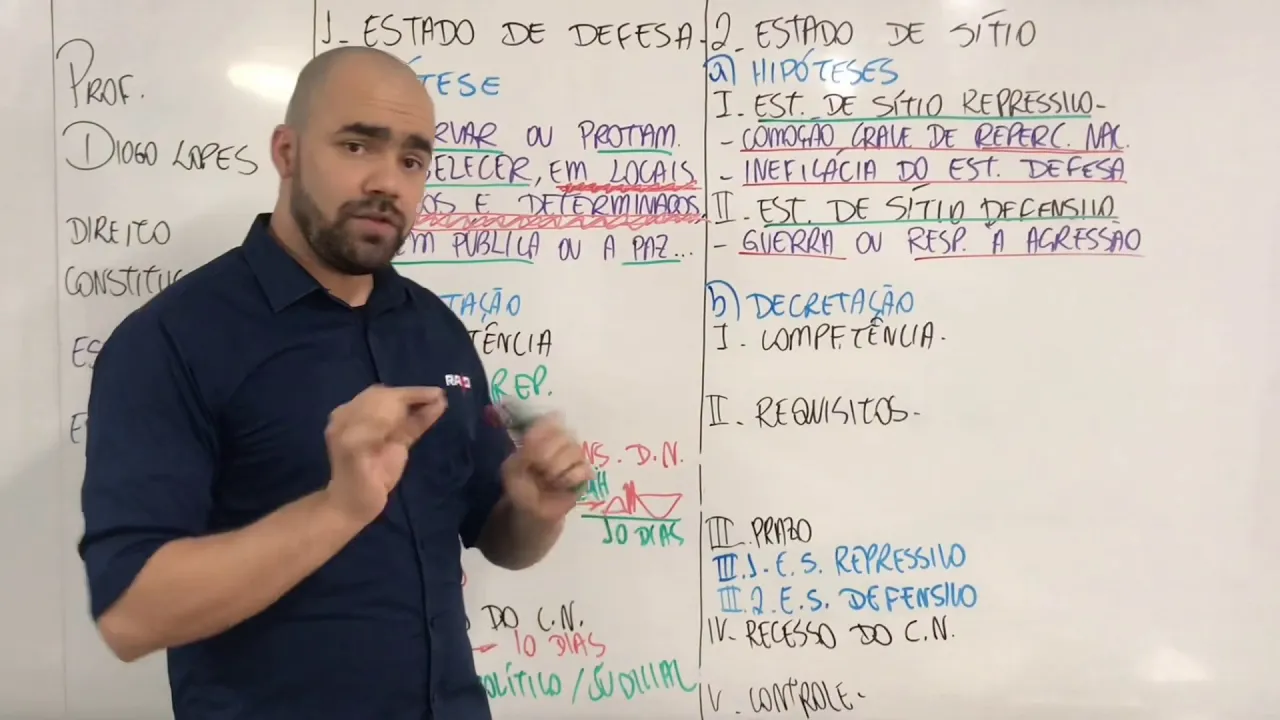 PROF.
DIOGO LOPES
DIREITO
CONSTITUC
ES
E
1- ESTADO DE DEFESA.
ÍTESE
RVAR OU PROTAM.
ELECER, EM LOCAIS
OS E DETERMINADOS
EM PÚBLICA OU A PAZ...
TAÇÃO
TÊNCIA
REP.
NS. D.N.
24H
10 DIAS
DO C.N.
- 10 DIAS
OLÍTICO / JUDICIAL
RA
2- ESTADO DE SÍTIO
a) HIPÓTESES
I- EST. DE SÍTIO REPRESSIVO-
- COMOÇÃO GRAVE DE REPERC. NAC.
- INEFICÁCIA DO EST. DEFESA
II- EST. DE SÍTIO DEFENSIVO
- GUERRA OU RESP. A AGRESSÃO
b) DECRETAÇÃO
I. COMPETÊNCIA.
II. REQUISITOS-
III- PRAZO
III.1- E.S. REPRESSIVO
III.2- E.S. DEFENSIVO
IV- RECESSO DO C.N.
V- CONTROLE-